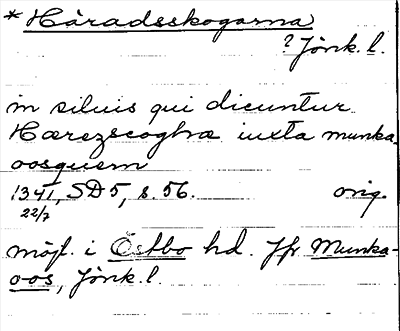 *Häradsskogarna
? Jönk. l.
in siluis qui dicuntur
Hærezscoghæ iuxta munka-
oosquern
1341, SD 5, s. 56. orig.
22/7
möjl. i Östbo hd. Jfr Munka-
o-os, Jönk. l.